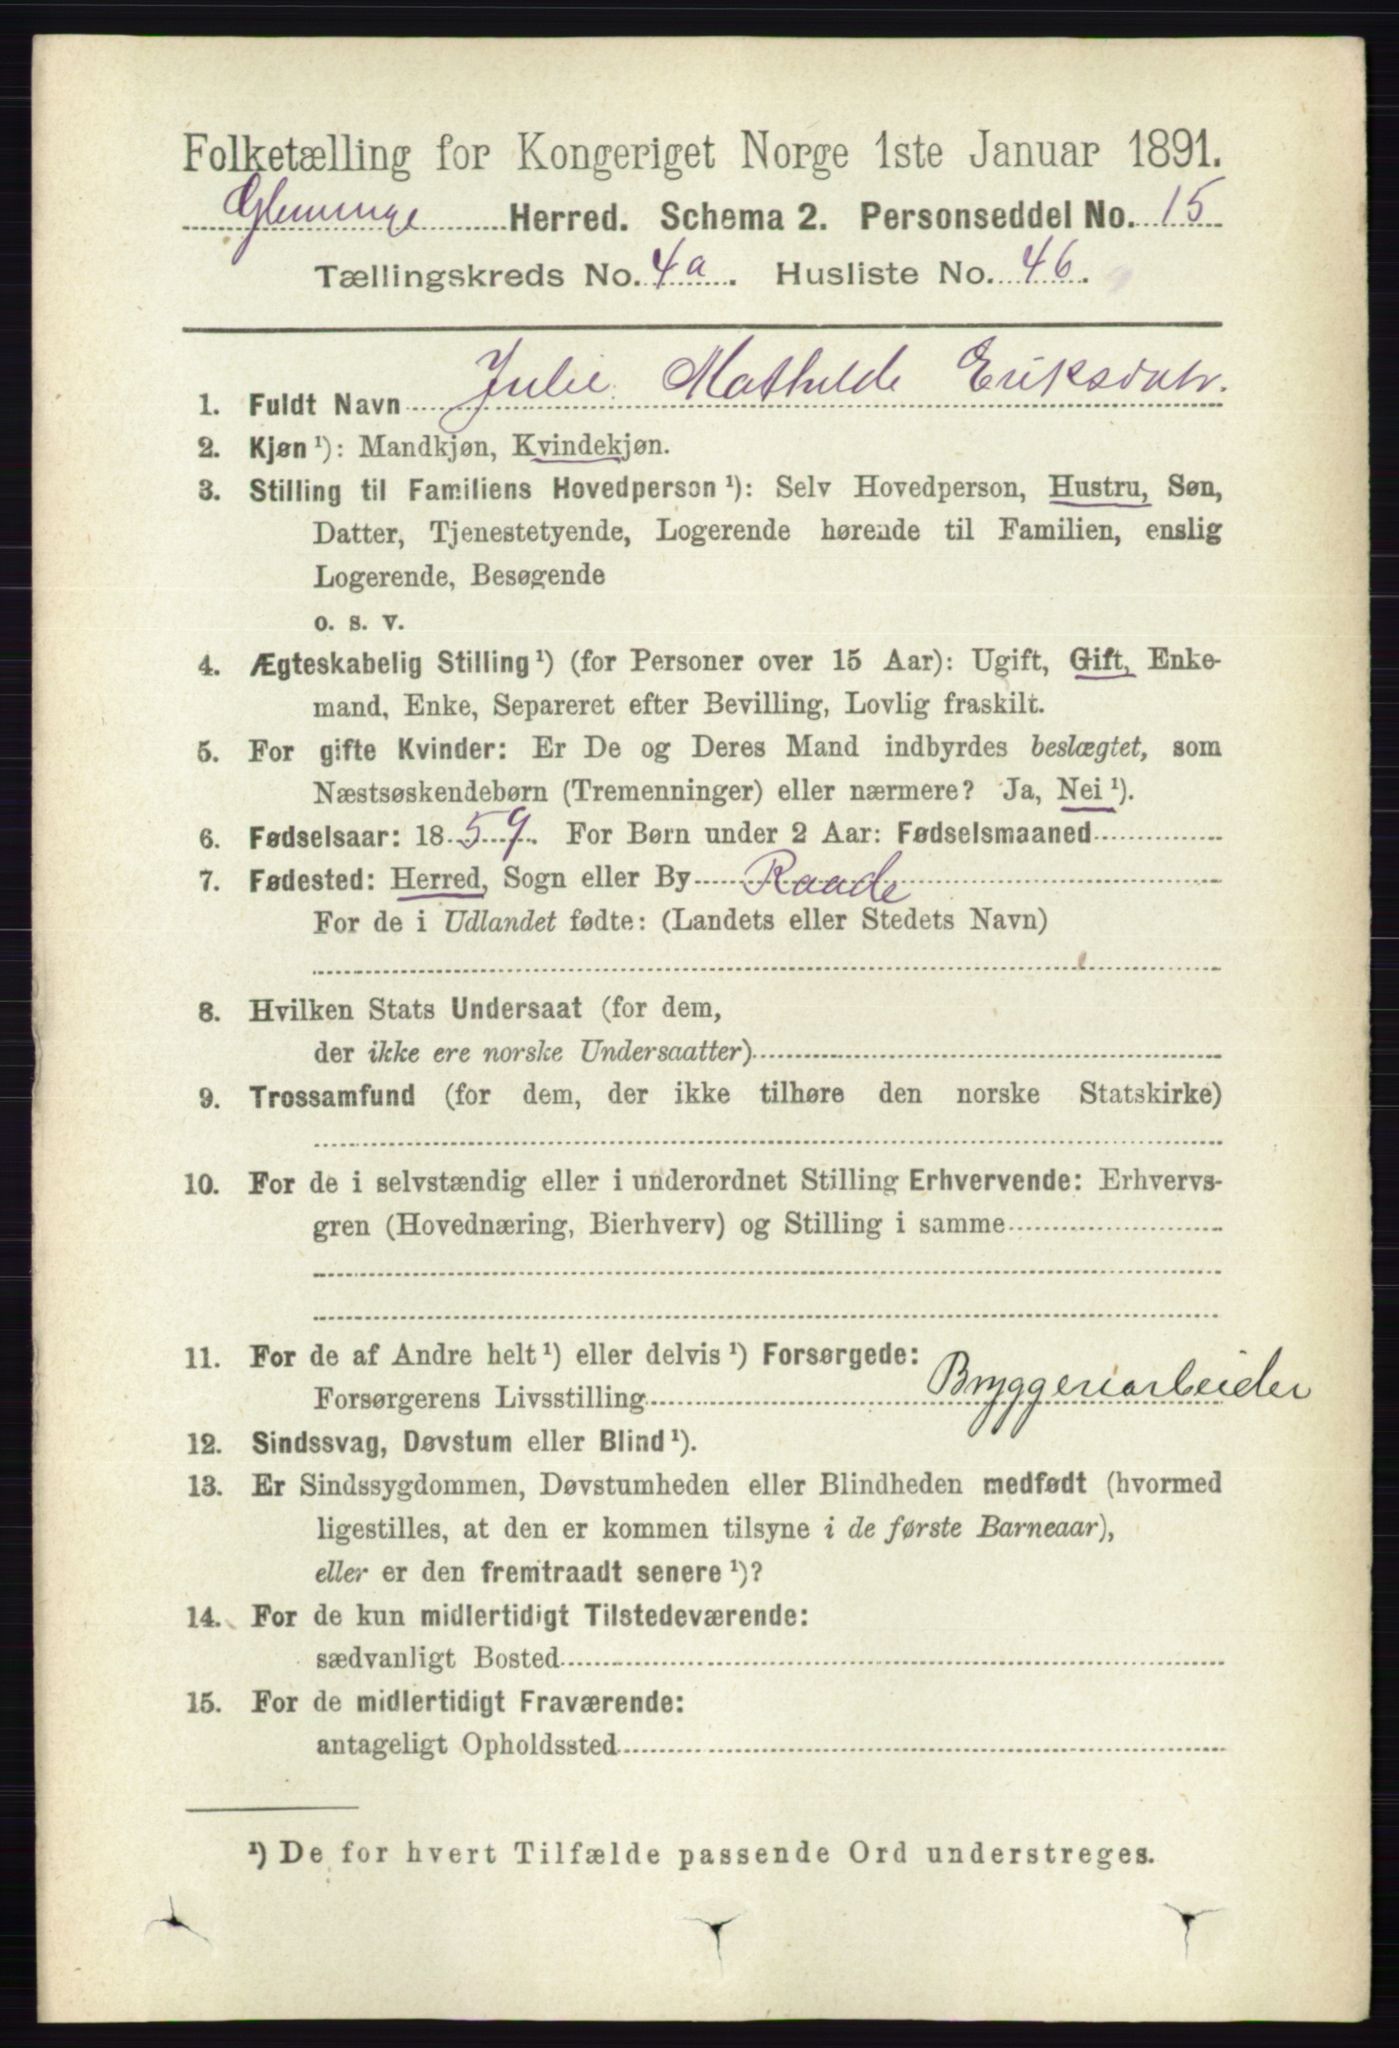 Folketælling for Kongeriget Norge 1ste Januar 1891.
Glemminge Herred. Schema 2. Personseddel No. 15
Tællingskreds No. 4a. Husliste No. 46.
1. Fuldt Navn Julie Mathilde Eriksdatr.
2. Kjøn ¹): Mandkjøn, Kvindekjøn.
3. Stilling til Familiens Hovedperson ¹): Selv Hovedperson, Hustru, Søn,
Datter, Tjenestetyende, Logerende hørende til Familien, enslig
Logerende, Besøgende
o. s. v.
4. Ægteskabelig Stilling ¹) (for Personer over 15 Aar): Ugift, Gift, Enke-
mand, Enke, Separeret efter Bevilling, Lovlig fraskilt.
5. For gifte Kvinder: Er De og Deres Mand indbyrdes beslægtet, som
Næstsøskendebørn (Tremenninger) eller nærmere? Ja, Nei ¹).
6. Fødselsaar: 1859. For Børn under 2 Aar: Fødselsmaaned
7. Fødested: Herred, Sogn eller By Raade
For de i Udlandet fødte: (Landets eller Stedets Navn)
8. Hvilken Stats Undersaat (for dem,
der ikke ere norske Undersaatter)
9. Trossamfund (for dem, der ikke tilhøre den norske Statskirke)
10. For de i selvstændig eller i underordnet Stilling Erhvervende: Erhvervs-
gren (Hovednæring, Bierhverv) og Stilling i samme
11. For de af Andre helt ¹) eller delvis ¹) Forsørgede:
Forsørgerens Livsstilling Bryggeriarbeider
12. Sindssvag, Døvstum eller Blind ¹).
13. Er Sindssygdommen, Døvstumheden eller Blindheden medfødt (hvormed
ligestilles, at den er kommen tilsyne i de første Barneaar),
eller er den fremtraadt senere ¹)?
14. For de kun midlertidigt Tilstedeværende:
sædvanligt Bosted
15. For de midlertidigt Fraværende:
antageligt Opholdssted
¹) De for hvert Tilfælde passende Ord understreges.